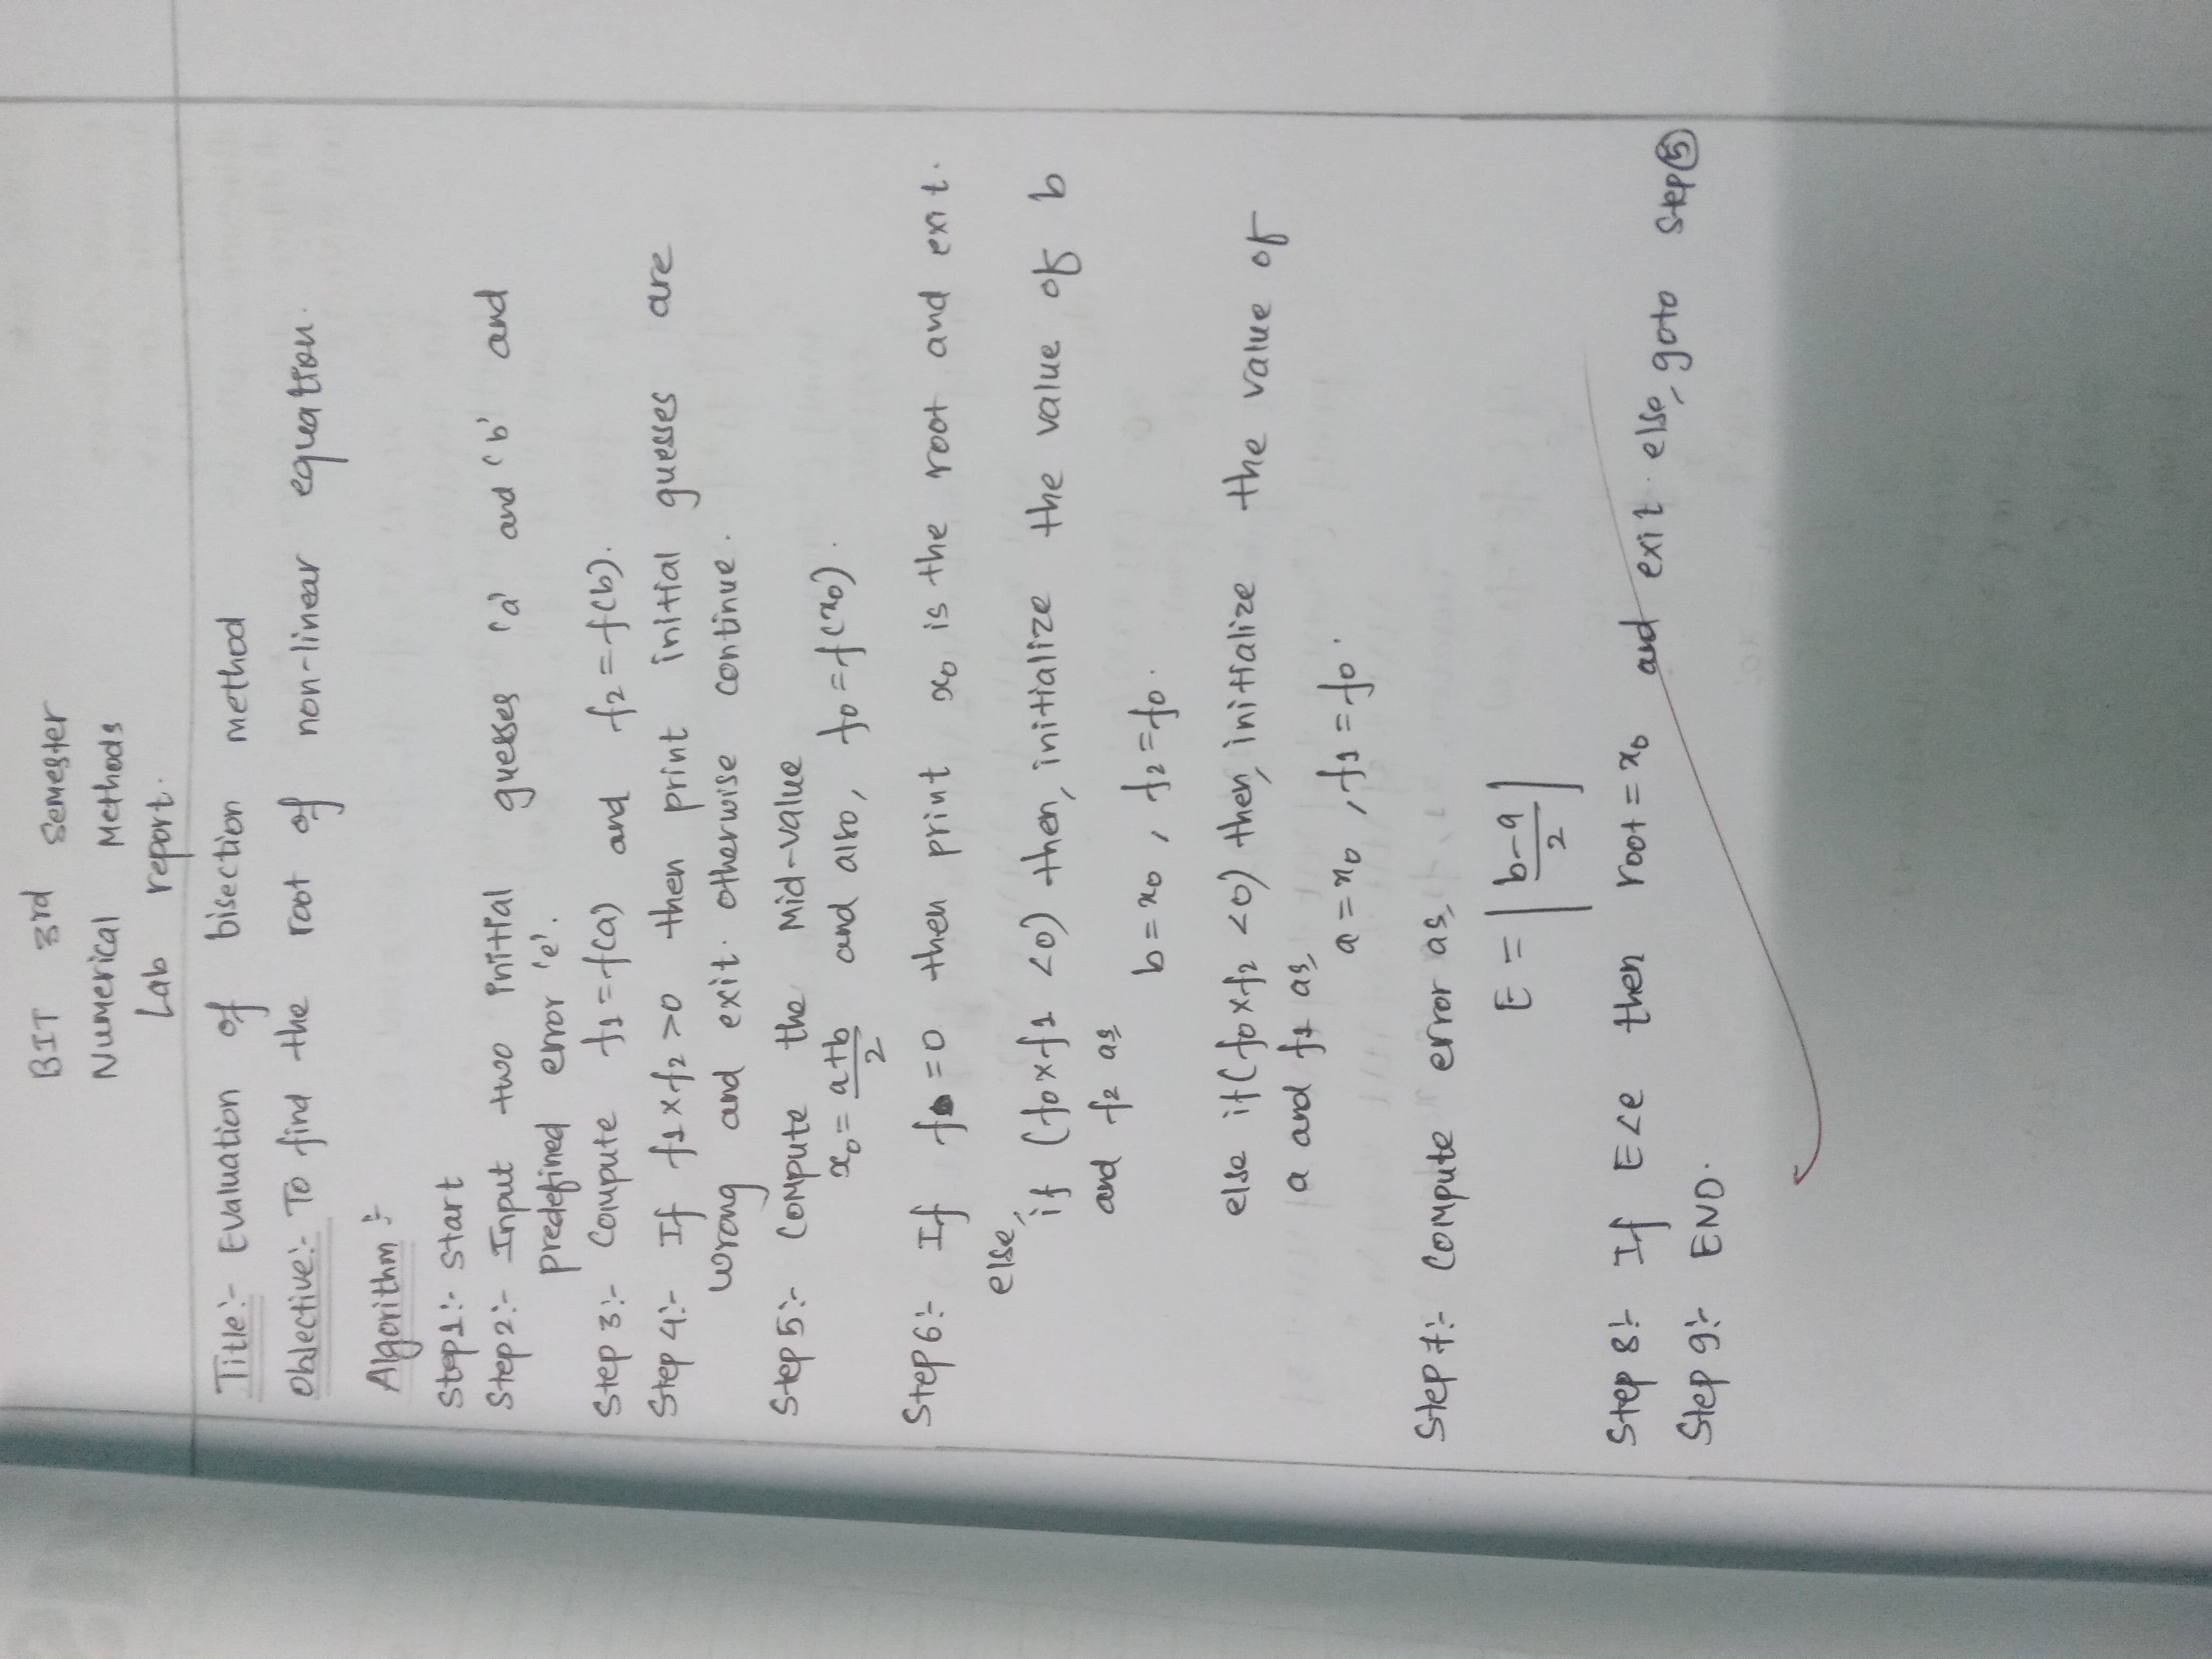 BIT 3rd Semester
Numerical Methods
Lab report.
Title:- Evaluation of bisection method
Objective:- To find the root of non-linear equation.
Algorithm :-
Step1:- Start
Step2:- Input two initial guesses 'a' and 'b' and
predefined error 'e'.
Step 3:- Compute f1 = f(a) and f2 = f(b).
Step 4:- If f1 x f2 >0 then print initial guesses are
wrong and exit. otherwise continue.
Step 5:- Compute the Mid-value
x0 = a+b/2 and also, f0 = f(x0).
Step 6:- If f0 = 0 then print x0 is the root and exit.
else,
if (f0 x f1 <0) then, initialize the value of b
and f2 as
b = x0 , f2 = f0.
else if (f0 x f2 <0) then, initialize the value of
a and f1 as,
a = x0 , f1 = f0.
Step 7:- Compute error as,
E = |b-a/2|
Step 8:- If E<e then root = x0 and exit. else, goto Step 5
Step 9:- END.